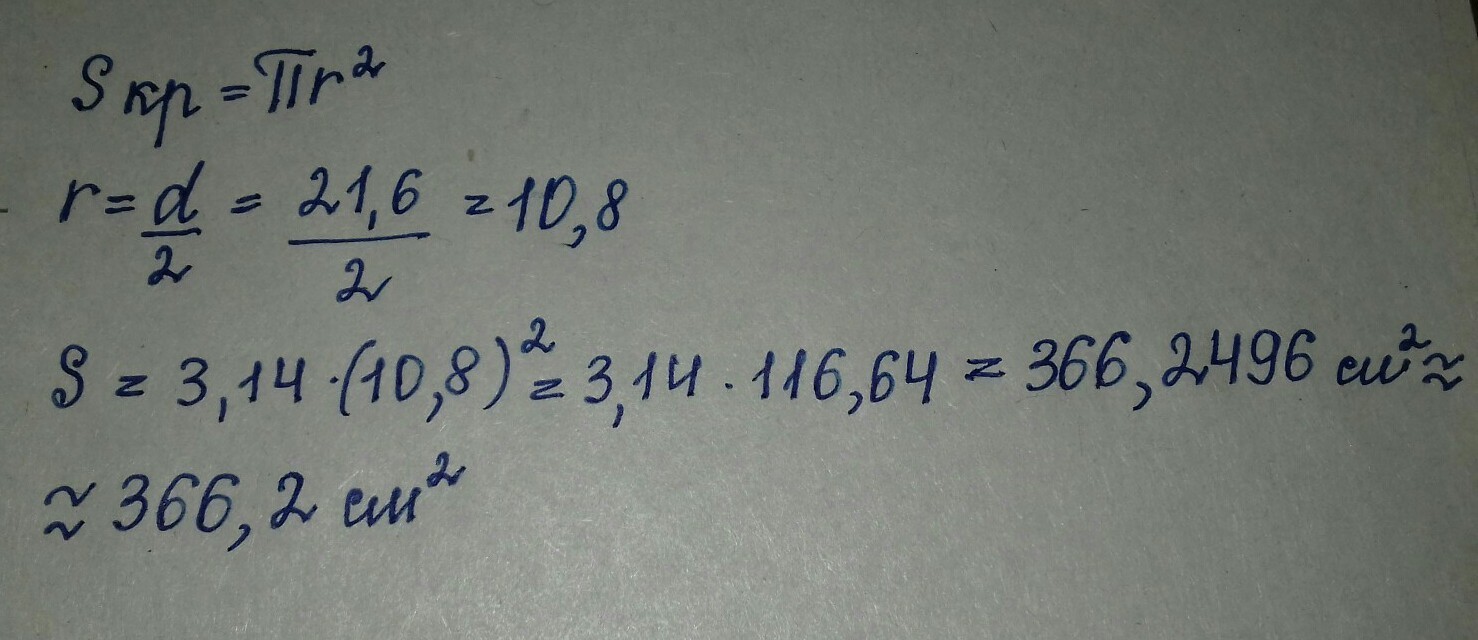 Sкр = πr²
r = d/2 = 21,6/2 = 10,8
S = 3,14 · (10,8)² = 3,14 · 116,64 = 366,2496 см² ≈
≈ 366,2 см²